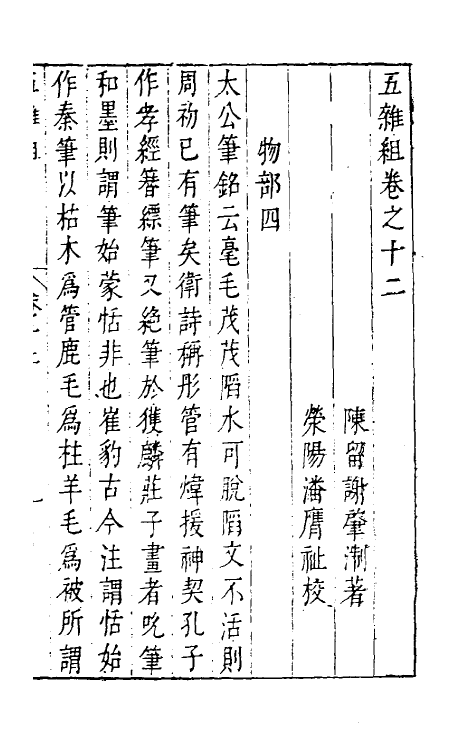 五雜組卷之十二
陳留謝肇淛著
滎陽潘膺祉校
物部四
太公筆銘云毫毛茂茂陷水可脫陷文不活則
周初已有筆矣衛詩稱彤管有煒援神契孔子
作孝經簪縹筆又絶筆於獲麟莊子畫者吮筆
和墨則謂筆始蒙恬非也崔豹古今注謂恬始
作秦筆以枯木爲管鹿毛爲柱羊毛爲被所謂